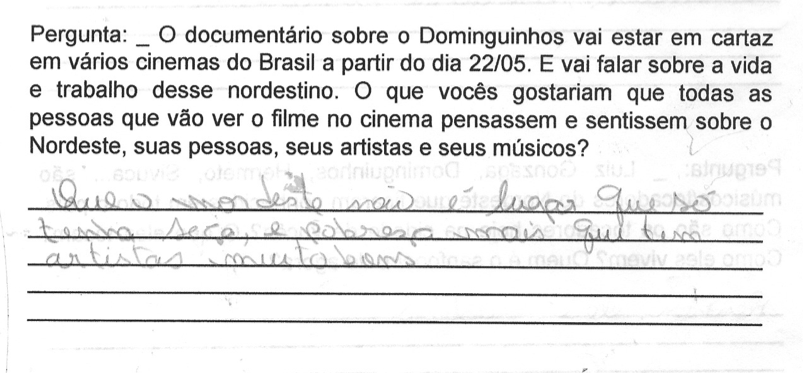 Pergunta: _ O documentário sobre o Dominguinhos vai estar em cartaz
em vários cinemas do Brasil a partir do dia 22/05. E vai falar sobre a vida
e trabalho desse nordestino. O que vocês gostariam que todas as
pessoas que vão ver o filme no cinema pensassem e sentissem sobre o
Nordeste, suas pessoas, seus artistas e seus músicos?
Que o nordeste não é lugar que só
tenha seca, e pobresa mais que tem
artistas muito bons